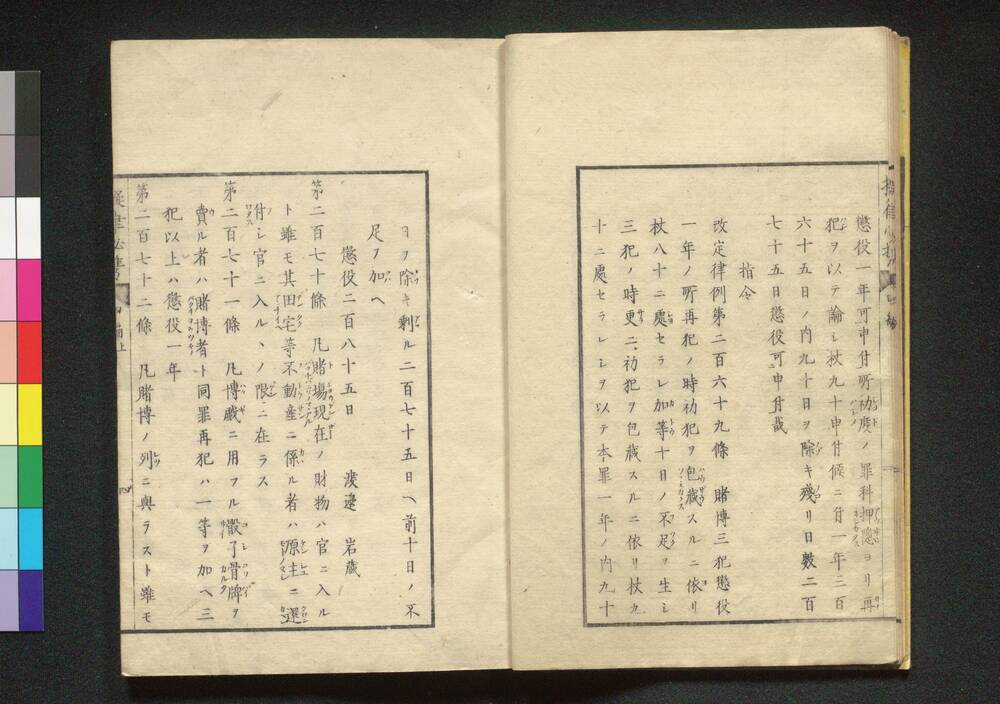 懲役一年可申付所初度ノ罪科押隠ヨリ再
犯ヲ以テ論シ杖九十申付候ニ付一年三百
六十五日ノ内九十日ヲ除キ殘リ日數二百
七十五日懲役可申付哉
指令
改定律例第二百六十九條　賭博三犯懲役
一年ノ所再犯ノ時初犯ヲ包藏スルニ依リ
杖八十ニ處セラレ加等十日ノ不足ヲ生シ
三犯ノ時更ニ初犯ヲ包藏スルニ依リ杖九
十ニ處セラレシヲ以テ本罪一年ノ内九十
日ヲ除キ剩ル二百七十五日ヘ前十日ノ不
足ヲ加ヘ
懲役二百八十五日　渡邉　岩藏
第二百七十條　凡賭場現在ノ財物ハ官ニ入ル
ト雖モ其田宅等不動産ニ係ル者ハ原主ニ還
付シ官ニ入ルヽノ限ニ在ラス
第二百七十一條　凡博戲ニ用フル骰子骨牌ヲ
賣ル者ハ賭博者ト同罪再犯ハ一等ヲ加ヘ三
犯以上ハ懲役一年
第二百七十二條　凡賭博ノ列ニ與ラスト雖モ